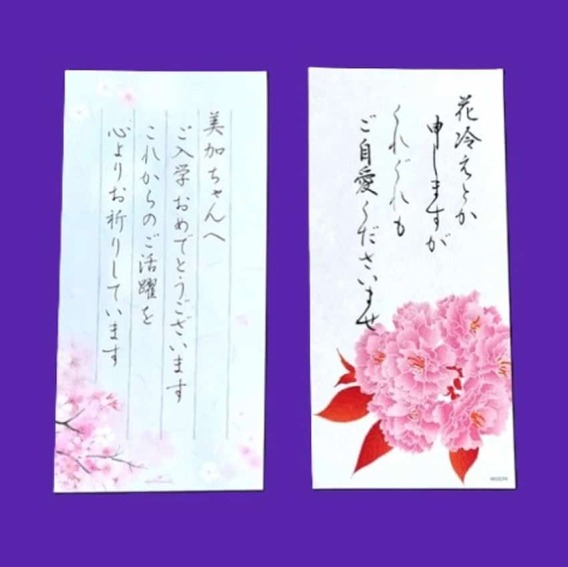 美加ちゃんへ
ご入学おめでとうございます
これからのご活躍を
心よりお祈りしています
花冷えとか
申しますが
くれぐれも
ご自愛くださいませ